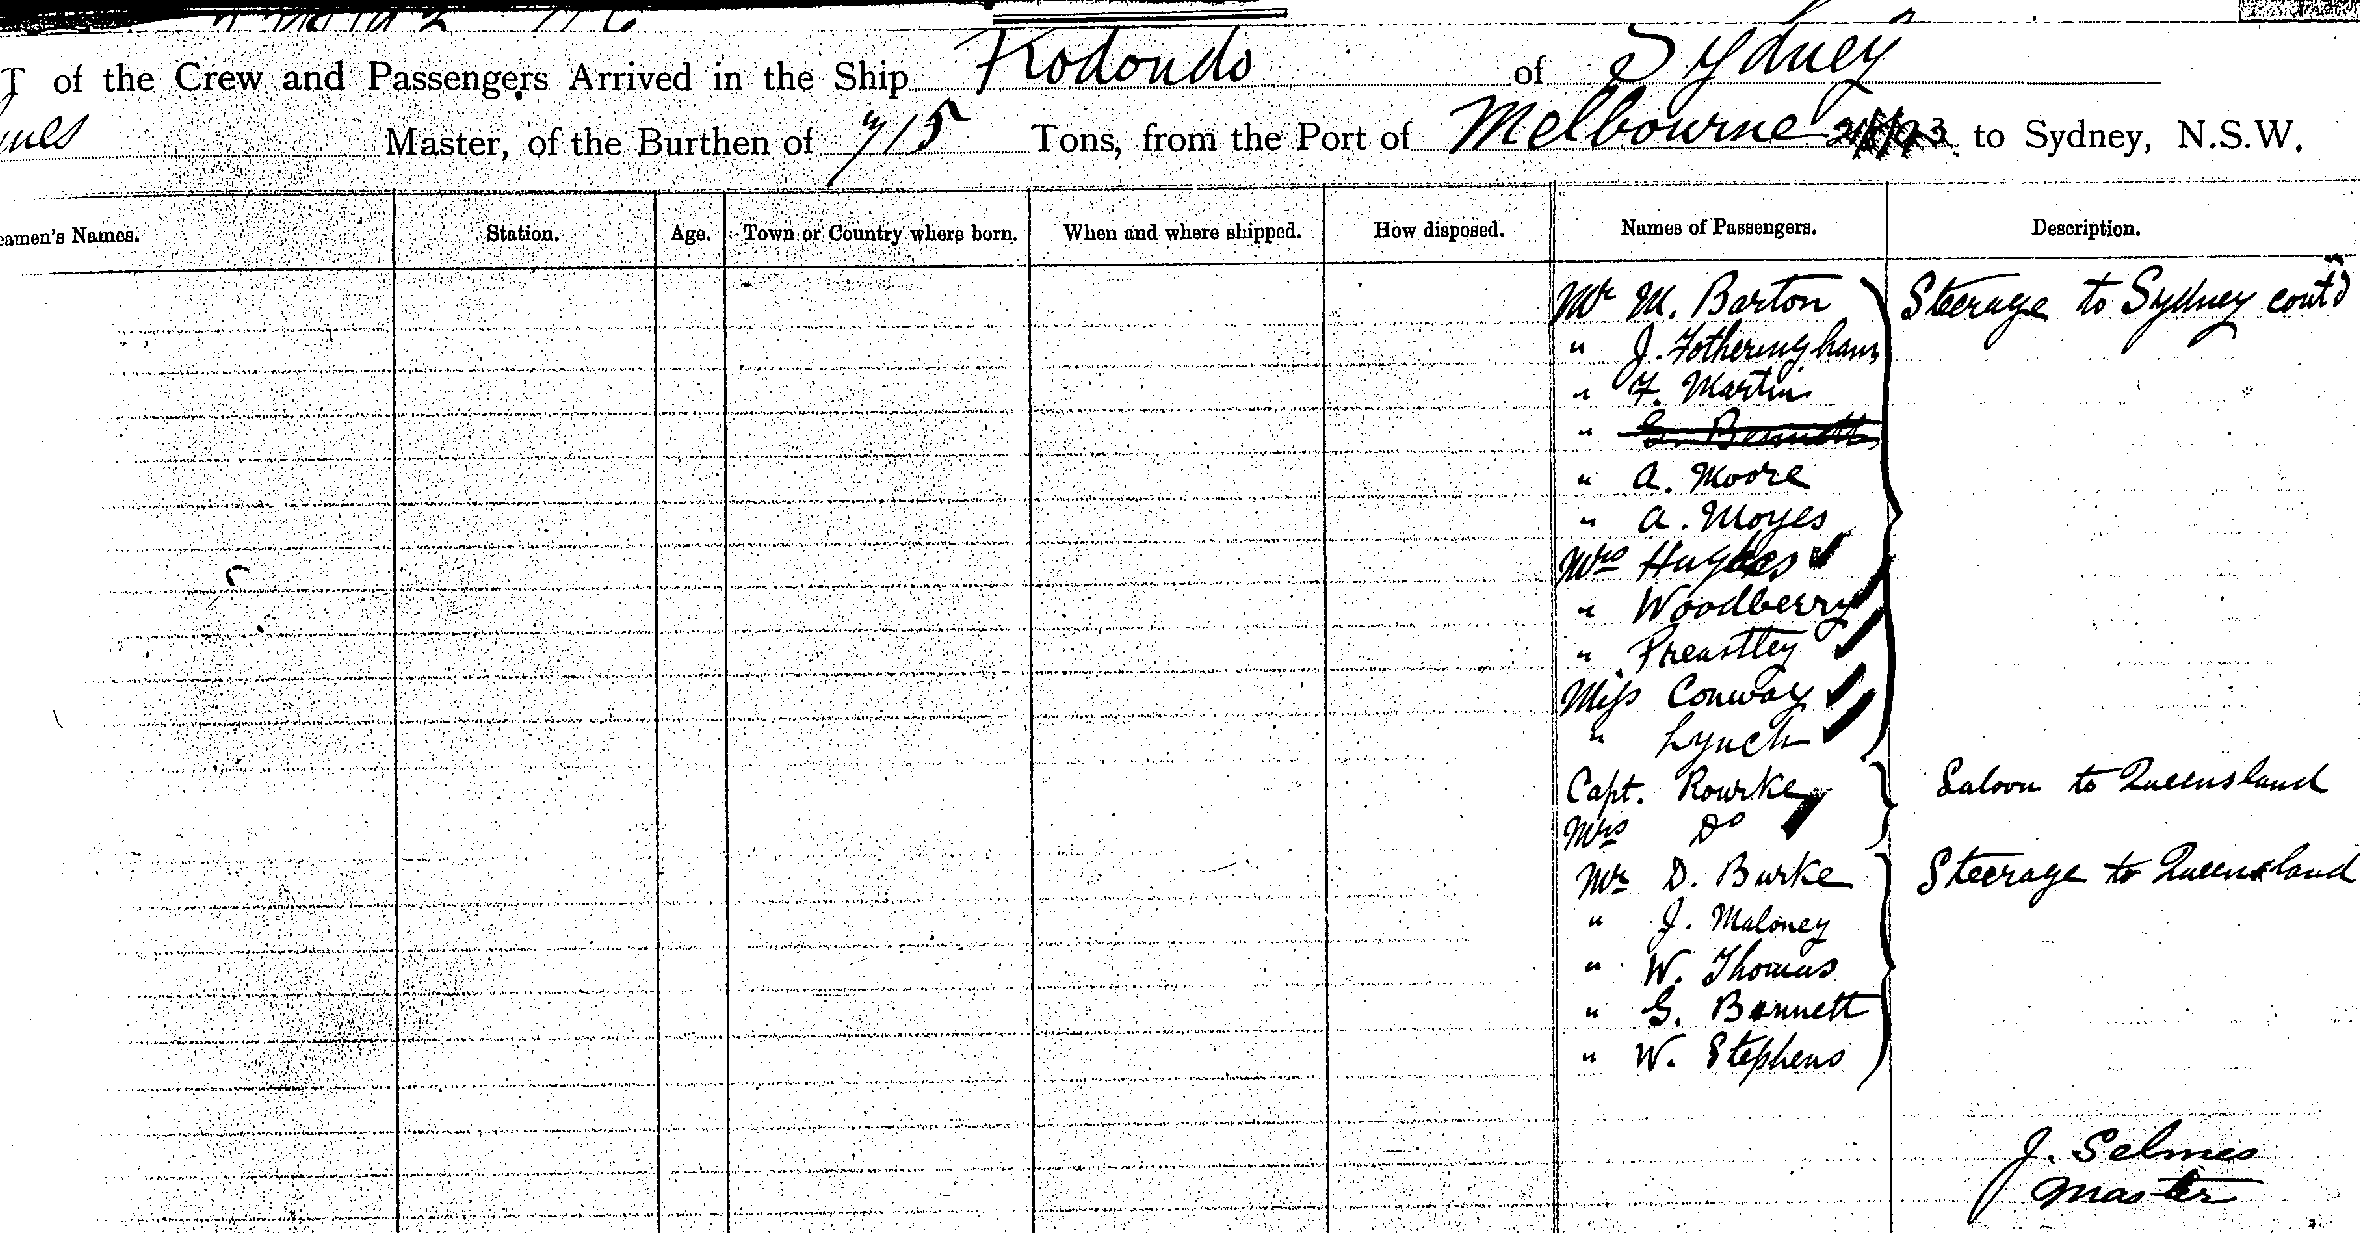 T of the Crew and Passengers Arrived in the Ship Rodondo of Sydney
Master, of the Burthen of 715 Tons, from the Port of Melbourne to Sydney, N.S.W.
eamen's Names. Station. Age. Town or Country where born. When and where shipped. How disposed. Names of Passengers. Description.
Mr M. Barton Steerage to Sydney cont'd
" J. Fotheringham
" F. Martin
" G. Bennett
" A. Moore
" A. Moyes
Mrs Hughes
" Woodberry
" Preastley
Miss Conway
" Lynch
Capt. Rourke Saloon to Queensland
Mrs Do
Mr D. Burke Steerage to Queensland
" J. Maloney
" W. Thomas
" G. Bennett
" W. Stephens
J. Selmes
Master